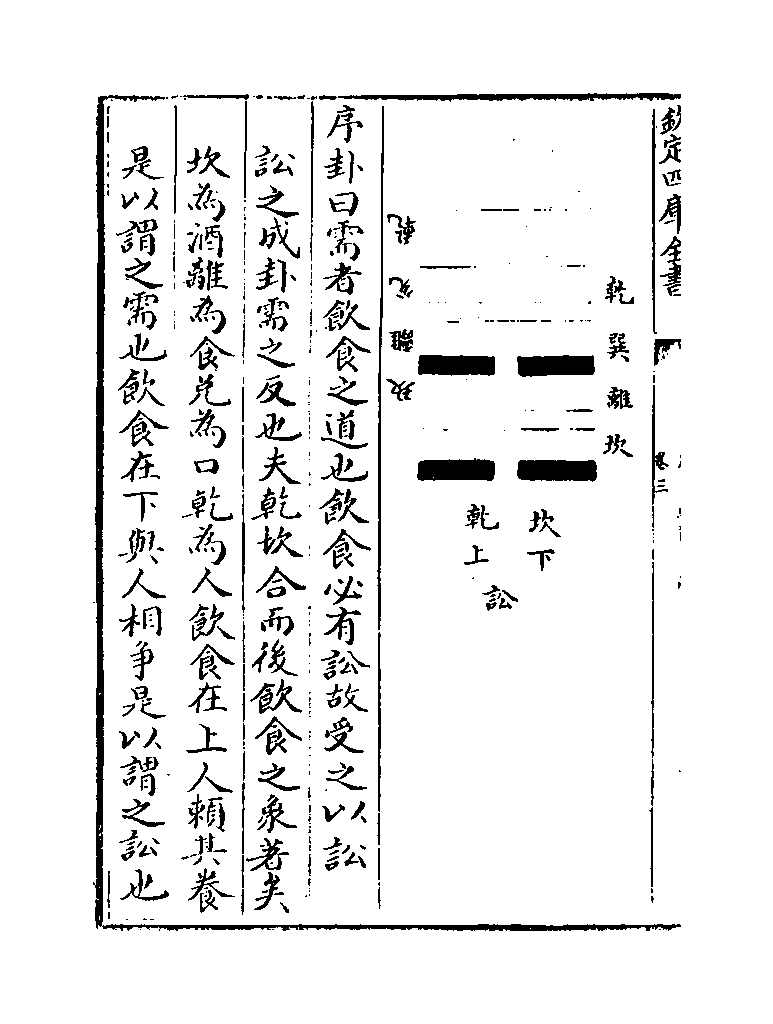 欽定四庫全書
卷三
乾巽離坎
坎下
乾上
訟
乾兌離坎
序卦曰需者飲食之道也飲食必有訟故受之以訟
訟之成卦需之反也夫乾坎合而後飲食之象著矣
坎為酒離為食兌為口乾為人飲食在上人賴其養
是以謂之需也飲食在下與人相争是以謂之訟也